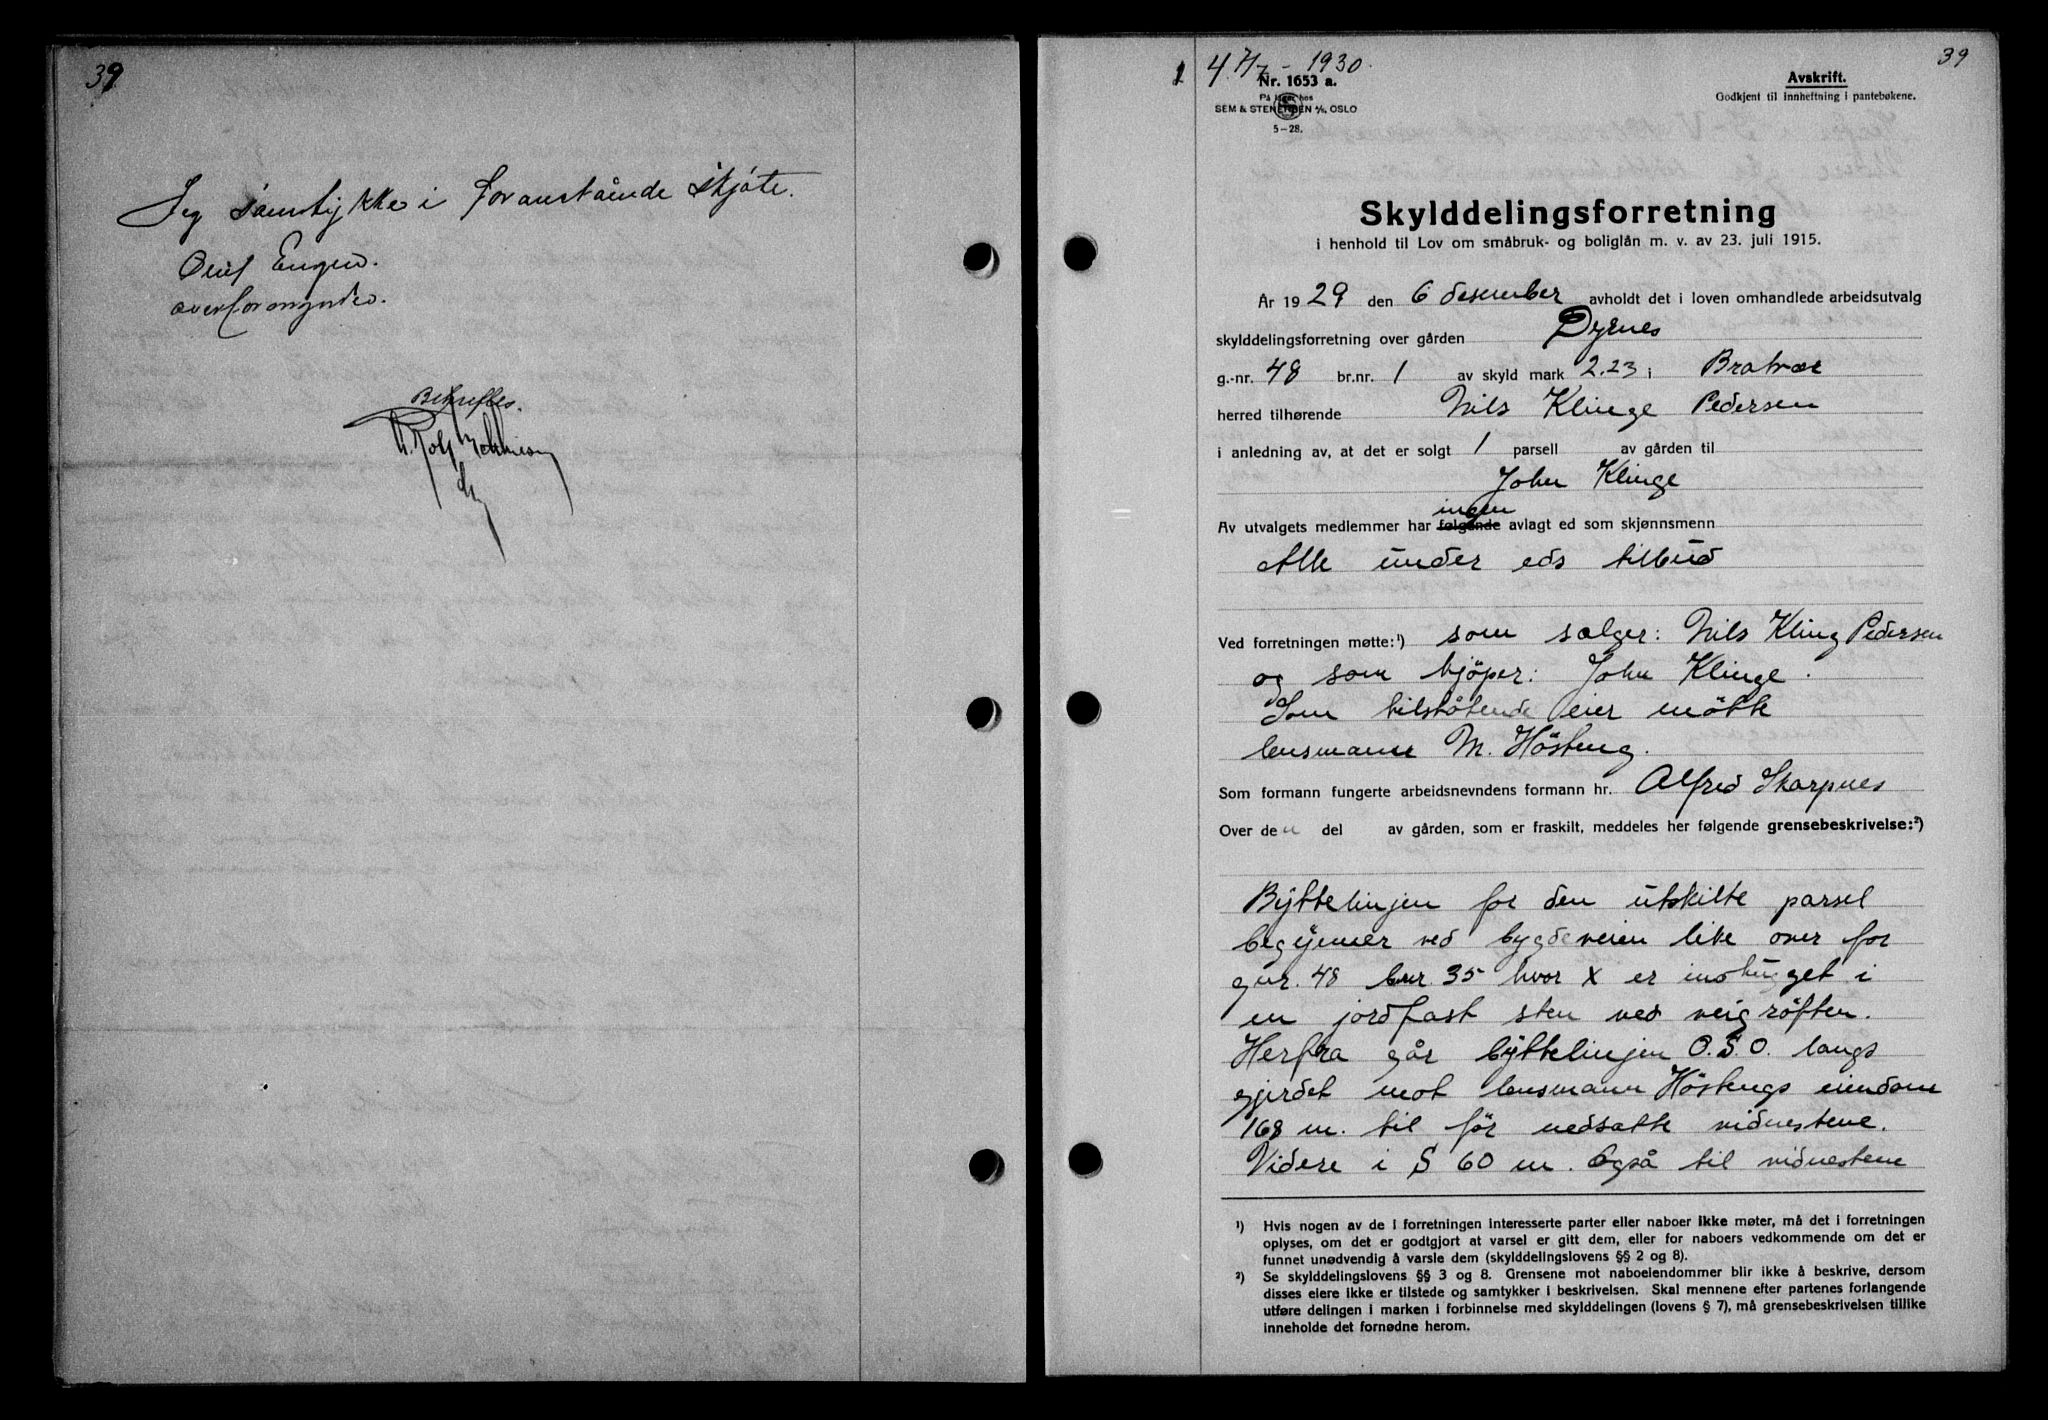 39
Jeg samtykke i foranstående skjøte.
Oluf Engen.
overformynder.
Bekreftes.
39
1930.
Nr. 1653 a.
På lager hos
SEM & STENERSEN A/S, OSLO
5-28.
Avskrift.
Godkjent til innheftning i pantebøkene.
Skylddelingsforretning
i henhold til Lov om småbruk- og boliglån m. v. av 23. juli 1915.
År 1929 den 6 desember avholdt det i loven omhandlede arbeidsutvalg
skylddelingsforretning over gården Dyrnes
g.-nr. 48 br.nr. 1 av skyld mark 2.23 i Bratvær
herred tilhørende Nils Klinge Pedersen
i anledning av, at det er solgt 1 parsell av gården til
John Klinge
ingen
Av utvalgets medlemmer har følgende avlagt ed som skjønnsmenn
Alle under eds tilbud
Ved forretningen møtte:¹) som sælger: Nils Kling Pedersen
og som kjöper: John Klinge.
Som tilstøtende eier mötte
lensmann M. Hösteng.
Som formann fungerte arbeidsnevndens formann hr. Alfred Skarpnes
Over den del av gården, som er fraskilt, meddeles her følgende grensebeskrivelse:²)
Byttelinjen for den utskilte parsel
begynner ved bygdeveien like over for
gnr. 48 bnr. 35 hvor X er indhugget i
en jordfast sten ved veigröften.
Herfra går byttelinjen O.S.O. langs
gjerdet mot lensmann Höstengs eiendom
168 m. til før nedsatte vidnestene.
Videre i S 60 m. også til vidnestene
¹) Hvis nogen av de i forretningen interesserte parter eller naboer ikke møter, må det i forretningen
oplyses, om det er godtgjort at varsel er gitt dem, eller for naboers vedkommende om det er
funnet unødvendig å varsle dem (skylddelingslovens §§ 2 og 8).
²) Se skylddelingslovens §§ 3 og 8. Grensene mot naboeiendommer blir ikke å beskrive, dersom
disses eiere ikke er tilstede og samtykker i beskrivelsen. Skal mennene efter partenes forlangende
utføre delingen i marken i forbinnelse med skylddelingen (lovens § 7), må grensebeskrivelsen tillike
inneholde det fornødne herom.